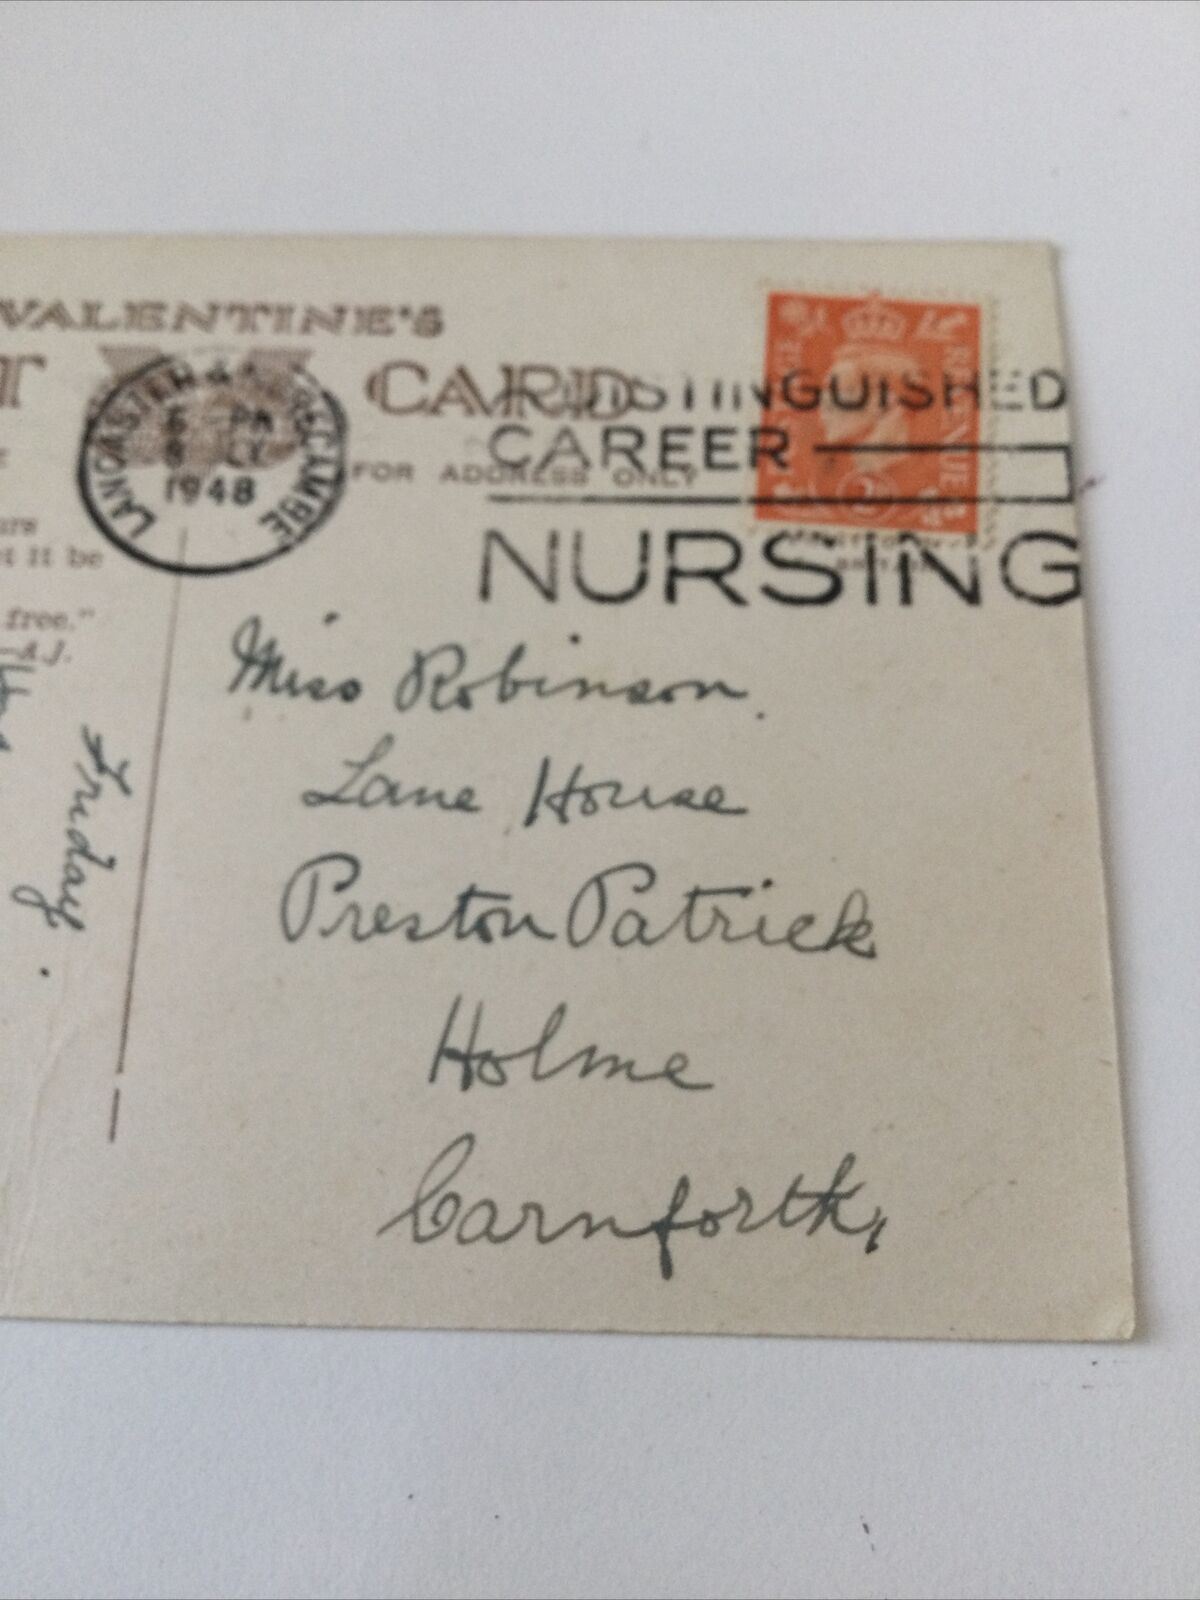 VALENTINE'S
T CARD
FOR ADDRESS ONLY
LANCASTER & MORECAMBE
PM
1948
DISTINGUISHED
CAREER
NURSING
REVENUE
t it be
free."
—A.J.
Friday.
Miss Robinson.
Lane House
Preston Patrick
Holme
Carnforth,